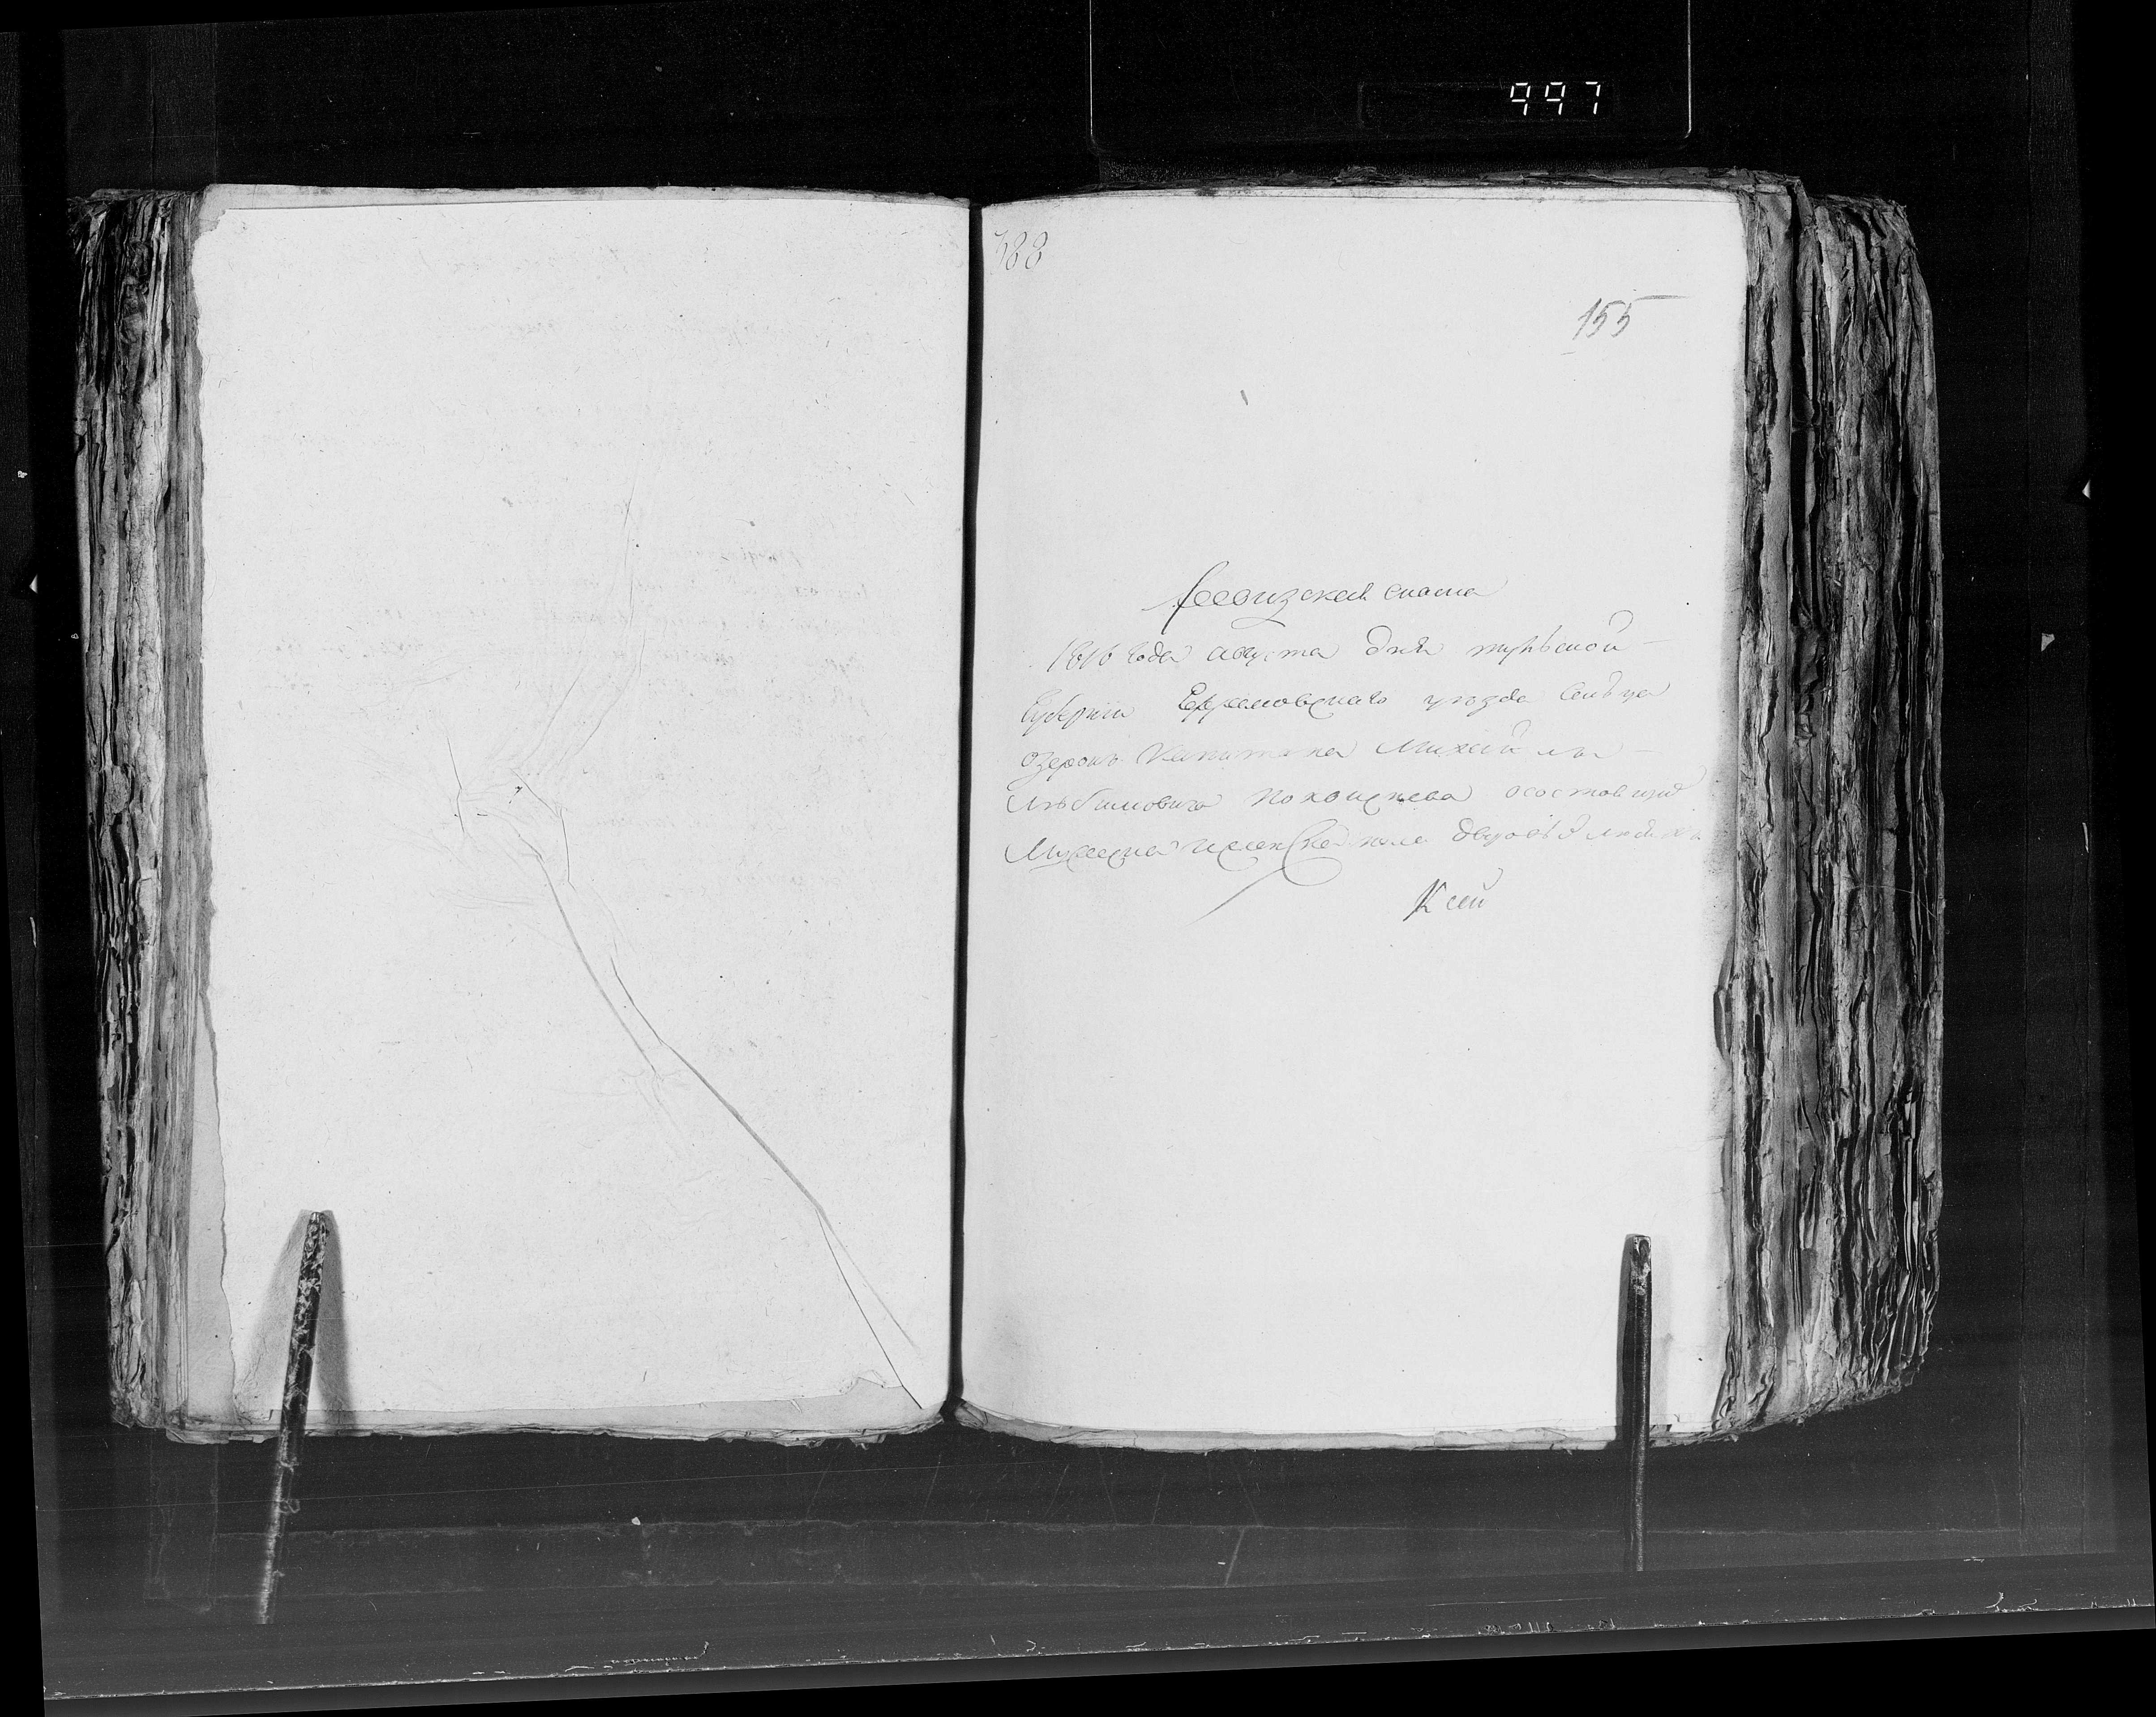 997
388
155
Ревизская сказка
1816 года августа дня тульской
Губернии Ефремовского уезда Сельца
озерокъ Капитана Михайлы
Похвиснева осостоящих
Мужеска и женска пола дворовыхъ людяхъ